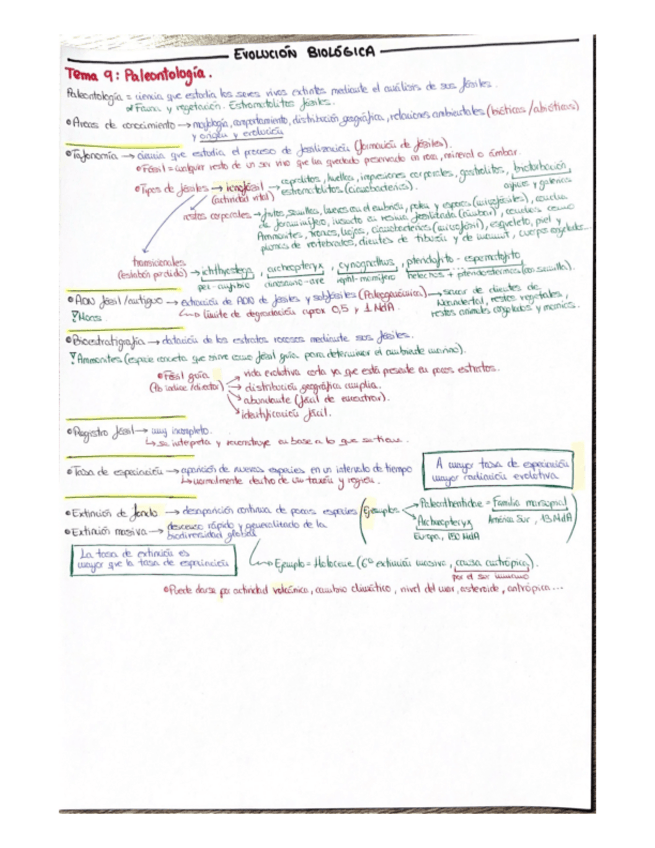 EVOLUCIÓN BIOLÓGICA
Tema 9: Paleontología.
Paleontología = ciencia que estudia los seres vivos extintos mediante el análisis de sus fósiles.
Fauna y vegetación. Estromatolitos fósiles.
Áreas de conocimiento → morfología, comportamiento, distribución geográfica, relaciones ambientales (bióticas/abióticas)
y origen y evolución
Tafonomía → ciencia que estudia el proceso de fosilización (formación de fósiles).
Fósil = cualquier resto de un ser vivo que ha quedado preservado en roca, mineral o ámbar.
Tipos de fósiles → icnofósil → coprolitos, huellas, impresiones corporales, gastrolitos, bioturbación,
(actividad vital) estromatolitos (cianobacterias).
restos corporales → frutos, semillas, polen y esporas (microfósiles), insecto en resina fosilizada (ámbar),
Ammonites, troncos, hojas, cianobacterias (microfósil), esqueleto, piel y
plumas de vertebrados, dientes de tiburón y de mamut, cuerpos congelados...
transicionales
(eslabón perdido) → ichthyostega, archaeopteryx, cynognathus, pteridofito - espermatofito
pez-anfibio dinosaurio-ave reptil-mamífero helechos + pteridospermas (con semilla).
ADN fósil/antiguo → extracción de ADN de fósiles y subfósiles (Paleogenómica) → sacar de dientes de
Neandertal, restos vegetales,
restos animales congelados y momias.
Límite de degradación aprox 0,5 y 1 MdA
Bioestratigrafía → datación de los estratos rocosos mediante sus fósiles.
Ammonites (especie concreta que sirve como fósil guía para determinar el ambiente marino).
Fósil guía → vida evolutiva corta ya que está presente en pocos estratos.
(Fs índice/director) → distribución geográfica amplia.
abundante (fácil de encontrar).
identificación fácil.
Registro fósil → muy incompleto.
se interpreta y reconstruye en base a lo que se tiene.
Tasa de especiación → aparición de nuevas especies en un intervalo de tiempo
normalmente dentro de un taxón y región.
A mayor tasa de especiación
mayor radiación evolutiva
Extinción de fondo → desaparición continua de pocas especies (Ejemplos → Paleothentidae = Familia marsupial
América Sur, 13 MdA
Archaeopteryx
Europa, 150 MdA)
Extinción masiva → descenso rápido y generalizado de la
biodiversidad global
La tasa de extinción es
mayor que la tasa de especiación
Ejemplo = Holoceno (6ª extinción masiva, causa antrópica).
por el ser humano
Puede darse por actividad volcánica, cambio climático, nivel del mar, asteroide, antrópica...